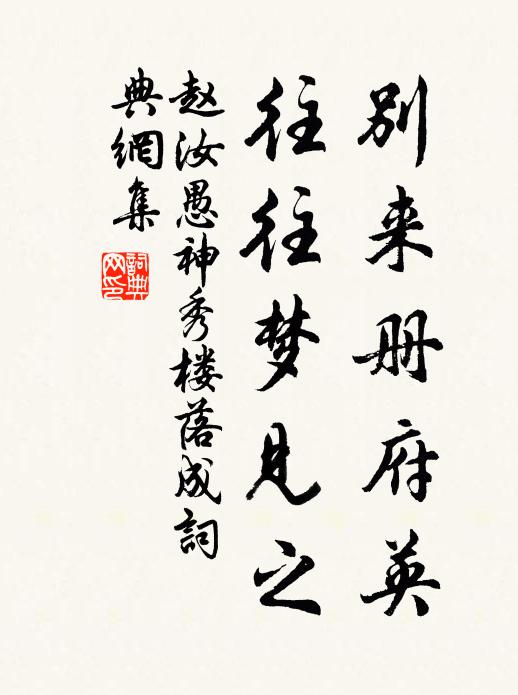 别来册府英
往往梦见之
赵汝愚神秀楼落成詞
典網集
詞典网印